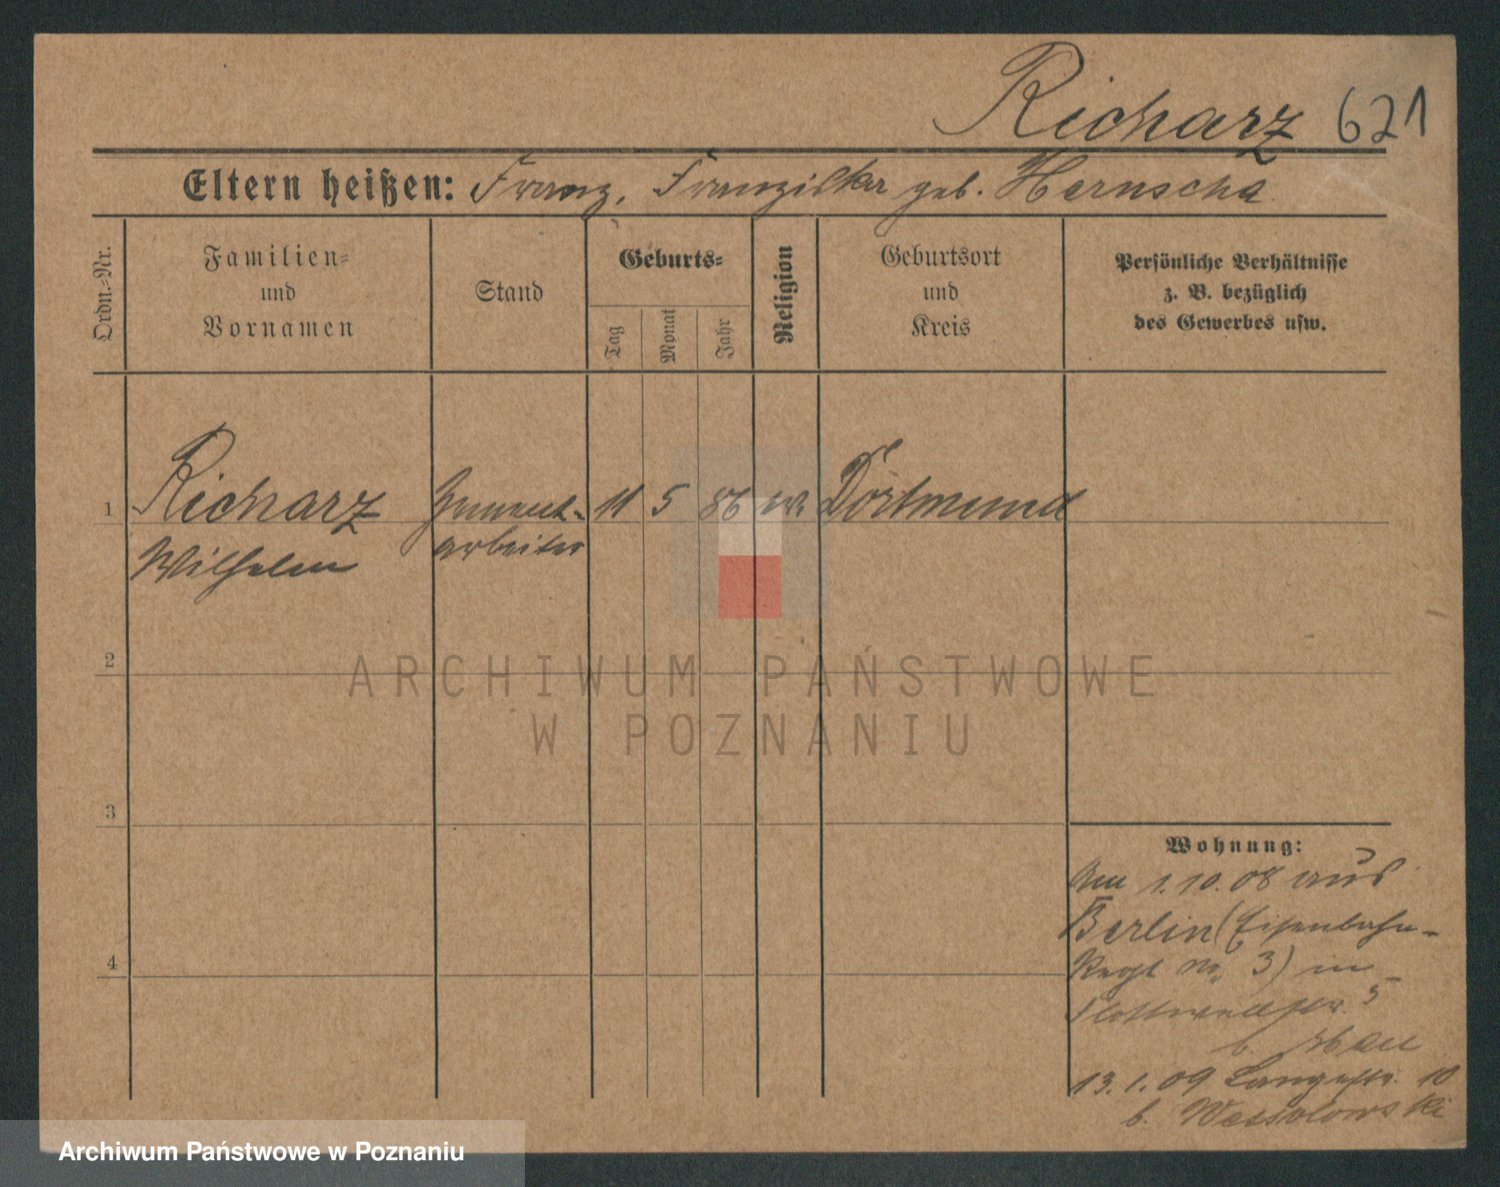 Richarz 621
Eltern heißen: Franz, Franziska geb. Harnscha
Ordn.-Nr.
Familien- und Vornamen
Stand
Geburts-
Tag
Monat
Jahr
Religion
Geburtsort und Kreis
Persönliche Verhältnisse
z. B. bezüglich
des Gewerbes usw.
1 Richarz Zement- 11 5 86 ev. Dortmund
Wilhelm arbeiter
2
ARCHIWUM PAŃSTWOWE
W POZNANIU
3
Wohnung:
Am 1.10.08 aus
Berlin (Eisenbahn-
Regt No. 3) in
Flottwellstr. 5
b.
4
13.1.09 Langestr. 10
b. Wessolowski
Archiwum Państwowe w Poznaniu